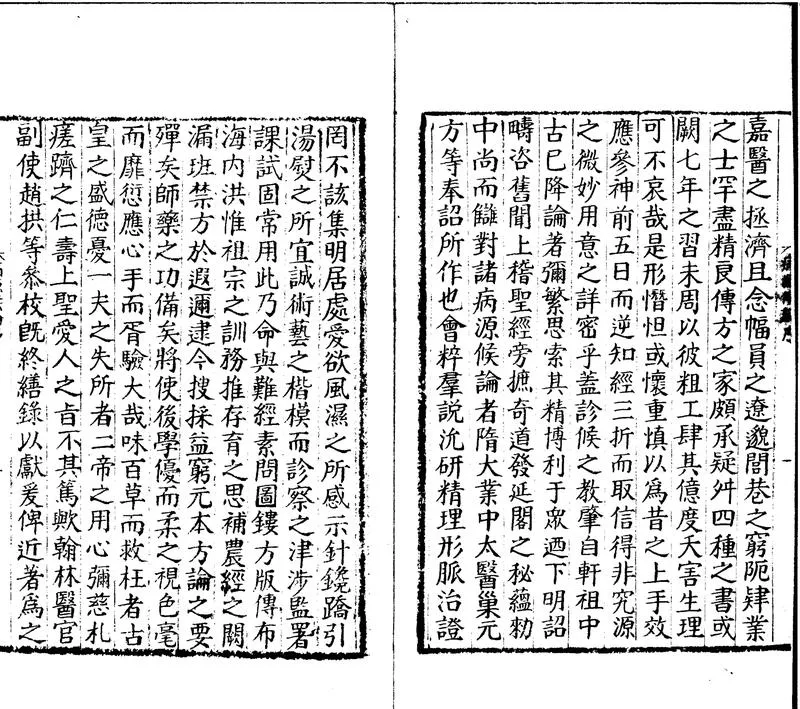 嘉醫之拯濟且念幅員之遼邈閭巷之窮阨肄業
之士罕盡精良傳方之家頗承疑舛四種之書或
闕七年之習未周以彼粗工肆其億度夭害生理
可不哀哉是形憯怛或懷重慎以爲昔之上手效
應參神前五日而逆知經三折而取信得非究源
之微妙用意之詳密乎蓋診候之教肇自軒祖中
古已降論著彌繁思索其精博利于衆迺下明詔
疇咨舊聞上稽聖經旁摭奇道發延閣之秘蘊勑
中尚而讎對諸病源候論者隋大業中太醫巢元
方等奉詔所作也會粹羣說沈研精理形脈治證
罔不該集明居處愛欲風濕之所感示針鑱蹻引
湯熨之所宜誠術藝之楷模而診察之津涉監署
課試固常用此乃命與難經素問圖鏤方版傳布
海内洪惟祖宗之訓務推存育之思補農經之闕
漏班禁方於遐邇逮今搜採益窮元本方論之要
殫矣師藥之功備矣將使後學優而柔之視色毫
而靡愆應心手而胥驗大哉味百草而救枉者古
皇之盛德憂一夫之失所者二帝之用心彌慈札
瘥躋之仁壽上聖愛人之旨不其篤歟翰林醫官
副使趙拱等叅校旣終繕錄以獻爰俾近著爲之